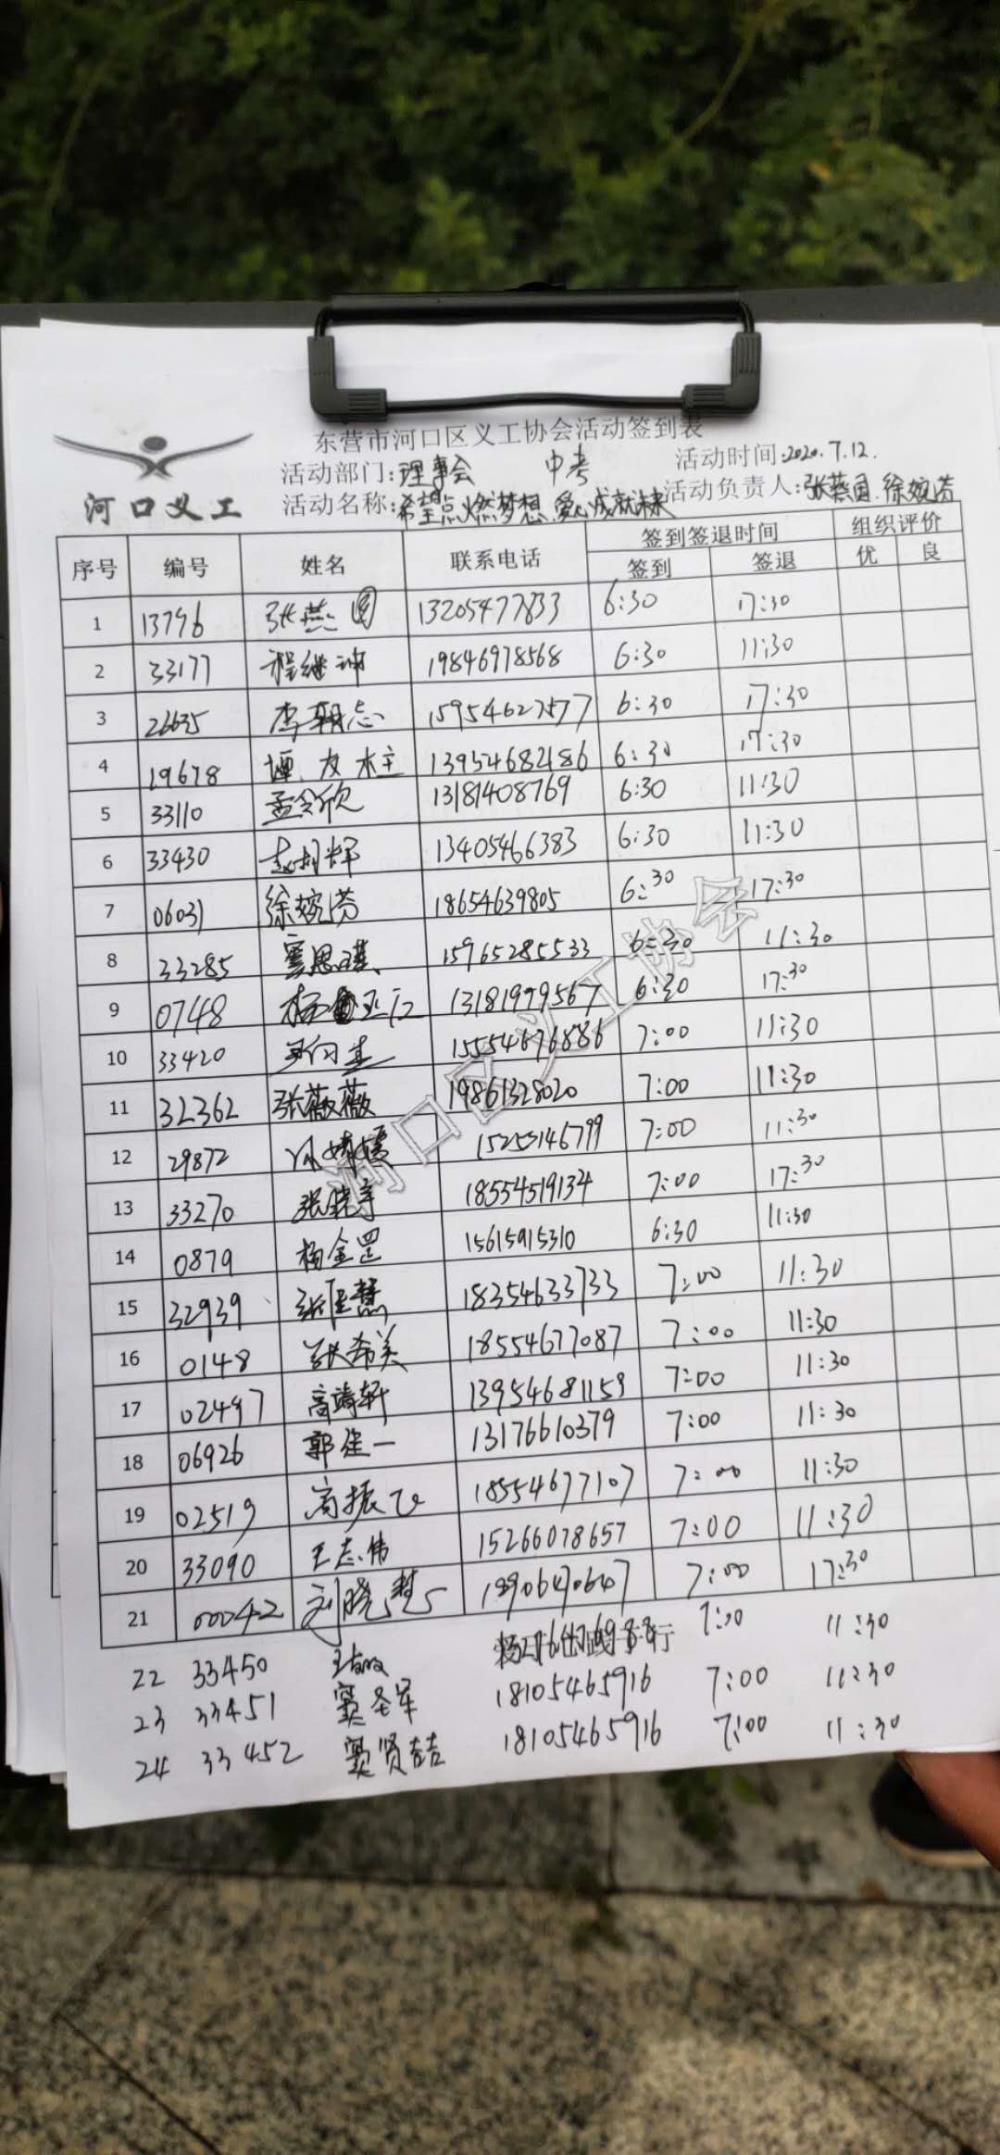 东营市河口区义工协会活动签到表
活动部门:理事会 中考 活动时间:2020.7.12.
河口义工 活动名称:希望点燃梦想 爱心成就未来 活动负责人:张燕园.徐婉芳
序号 编号 姓名 联系电话 签到签退时间 组织评价
签到 签退 优 良
1 13796 张燕园 13205477833 6:30 17:30
2 33177 程继坤 19846978568 6:30 11:30
3 26635 李朝志 15954627577 6:30 17:30
4 19678 友柱 13954682186 6:30 17:30
5 33110 孟令欣 13181408769 6:30 11:30
6 33430 13405466383 6:30 11:30
7 06031 徐婉芳 18654639805 6:30 17:30
8 33285 窦思琪 15965285533 6:30 11:30
9 0748 杨 13181979567 6:30 17:30
10 33420 15554676886 7:00 11:30
11 32362 张薇薇 19861328020 7:00 11:30
12 29872 15253146799 7:00 11:30
13 33270 张 18554519134 7:00 17:30
14 0879 杨金罡 15615915310 6:30 11:30
15 32939 张 慧 18354633733 7:00 11:30
16 0148 张希美 18554677087 7:00 11:30
17 02497 高靖轩 13954681159 7:00 11:30
18 06926 郭佳一 13176610379 7:00 11:30
19 02519 高振飞 18554677107 7:00 11:30
20 33090 王志伟 15266078657 7:00 11:30
21 00042 刘晓慧 18906470647 7:00 17:30
22 33450 7:30 11:30
23 33451 窦圣军 18105465916 7:00 11:30
24 33452 窦贤喆 18105465916 7:00 11:30
河口区义工协会